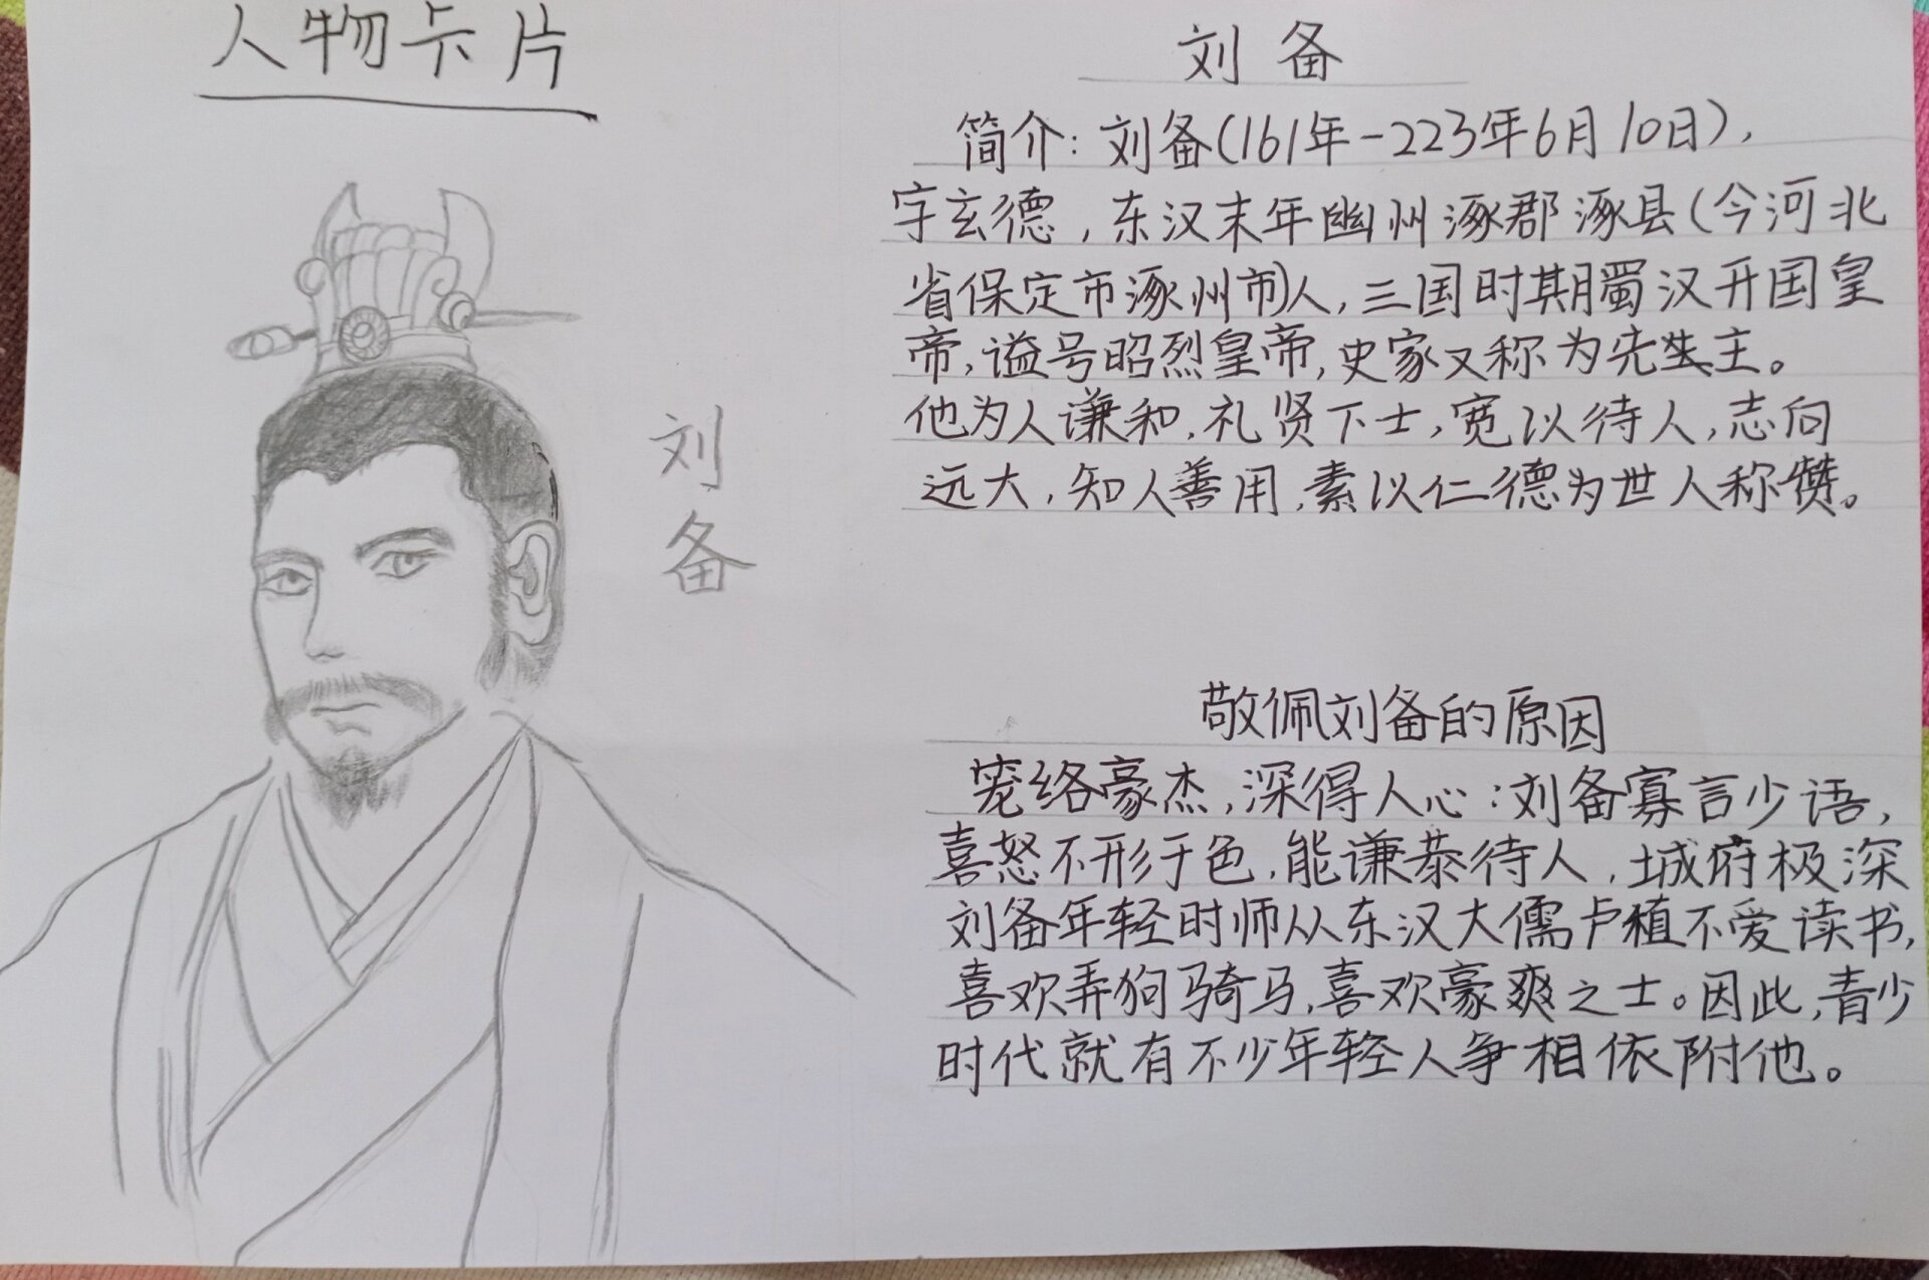 人物卡片
刘备
刘备
简介：刘备(161年-223年6月10日)，
字玄德，东汉末年幽州涿郡涿县(今河北
省保定市涿州市)人，三国时期蜀汉开国皇
帝，谥号昭烈皇帝，史家又称为先主。
他为人谦和，礼贤下士，宽以待人，志向
远大，知人善用，素以仁德为世人称赞。
敬佩刘备的原因
笼络豪杰，深得人心：刘备寡言少语，
喜怒不形于色，能谦恭待人，城府极深
刘备年轻时师从东汉大儒卢植不爱读书，
喜欢弄狗骑马，喜欢豪爽之士。因此，青少
时代就有不少年轻人争相依附他。